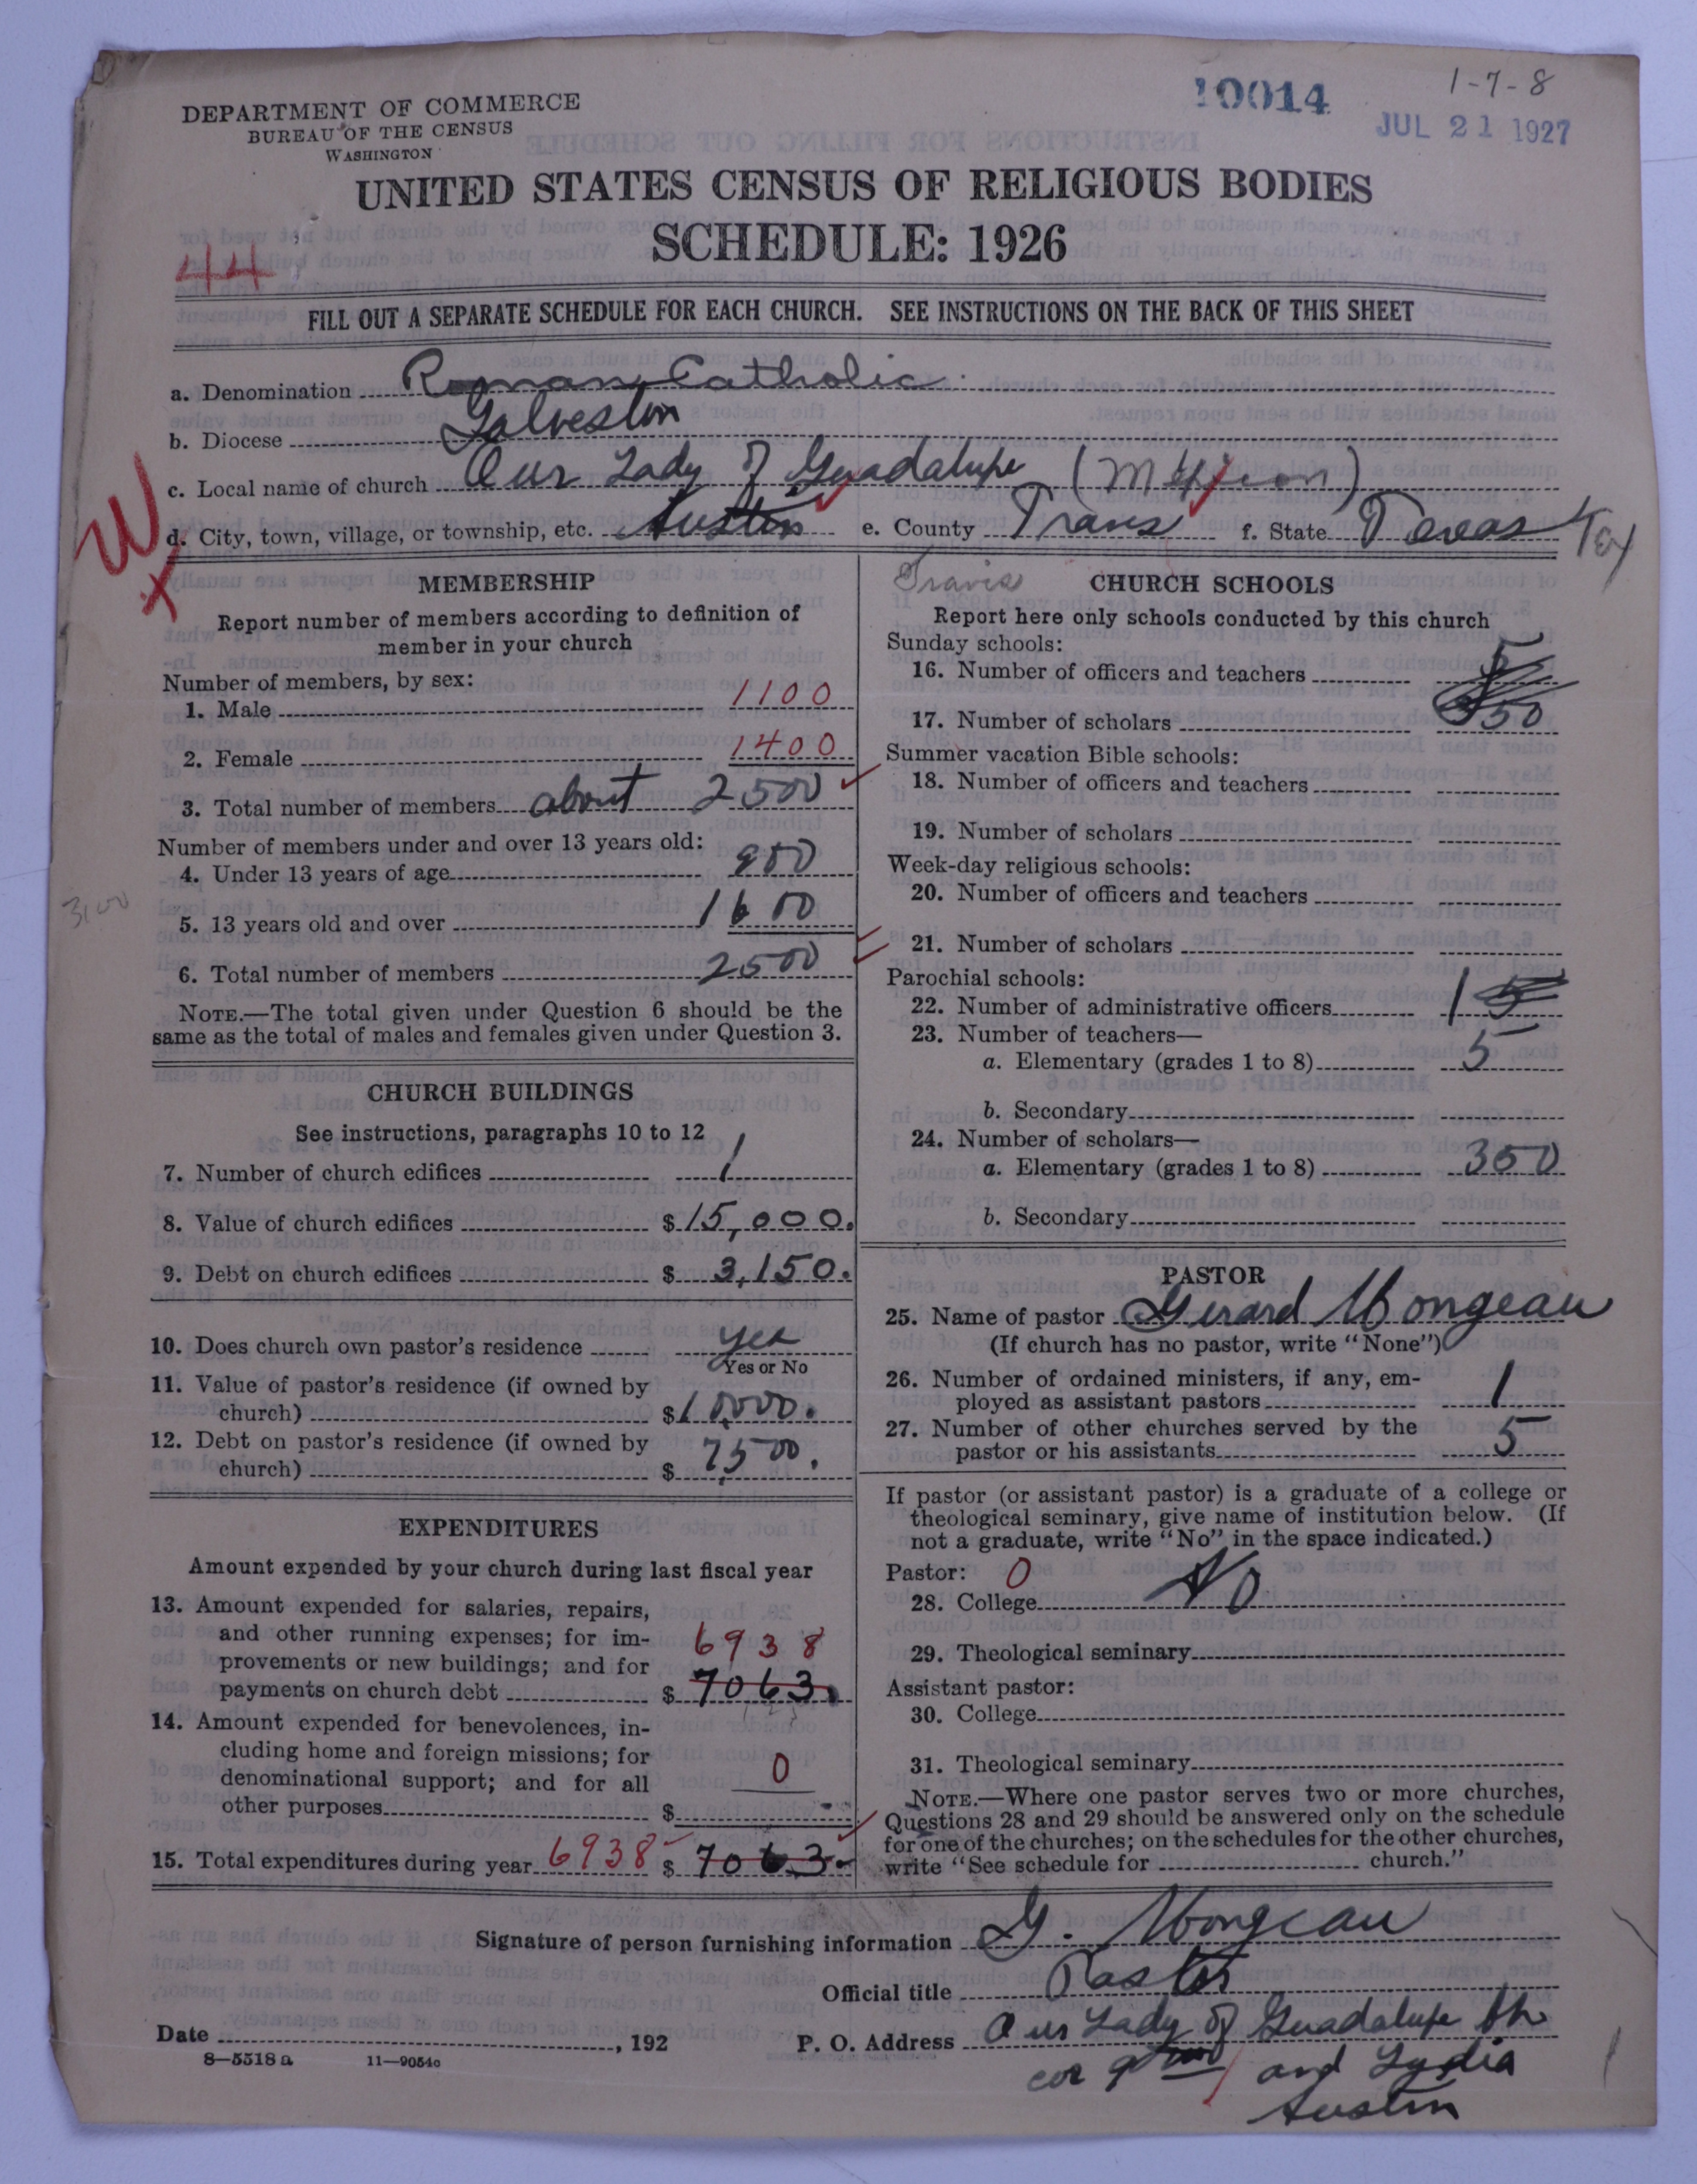 10014
1-7-8
JUL 21 1927
DEPARTMENT OF COMMERCE
BUREAU OF THE CENSUS
WASHINGTON
UNITED STATES CENSUS OF RELIGIOUS BODIES
SCHEDULE: 1926
44
FILL OUT A SEPARATE SCHEDULE FOR EACH CHURCH. SEE INSTRUCTIONS ON THE BACK OF THIS SHEET
a. Denomination Roman Catholic
b. Diocese Galveston
c. Local name of church Our Lady of Guadalupe (Mexican)
W
d. City, town, village, or township, etc. Austin e. County Travis f. State Texas Tex
MEMBERSHIP
Report number of members according to definition of
member in your church
Number of members, by sex:
1. Male 1100
2. Female 1400
3. Total number of members about 2500
Number of members under and over 13 years old:
4. Under 13 years of age 900
3100
5. 13 years old and over 1600
6. Total number of members 2500
NOTE.—The total given under Question 6 should be the
same as the total of males and females given under Question 3.
CHURCH BUILDINGS
See instructions, paragraphs 10 to 12
7. Number of church edifices 1
8. Value of church edifices $15,000.
9. Debt on church edifices $3,150.
10. Does church own pastor's residence yes
Yes or No
11. Value of pastor's residence (if owned by
church) $10,000.
12. Debt on pastor's residence (if owned by
church) $7,500.
EXPENDITURES
Amount expended by your church during last fiscal year
13. Amount expended for salaries, repairs,
and other running expenses; for im-
provements or new buildings; and for 6938
payments on church debt $7063.
14. Amount expended for benevolences, in-
cluding home and foreign missions; for
denominational support; and for all 0
other purposes $
15. Total expenditures during year 6938 $7063.
Travis
CHURCH SCHOOLS
Report here only schools conducted by this church
Sunday schools:
16. Number of officers and teachers 5
17. Number of scholars 350
Summer vacation Bible schools:
18. Number of officers and teachers
19. Number of scholars
Week-day religious schools:
20. Number of officers and teachers
21. Number of scholars
Parochial schools:
22. Number of administrative officers 1 5
23. Number of teachers—
a. Elementary (grades 1 to 8) 5
b. Secondary
24. Number of scholars—
a. Elementary (grades 1 to 8) 350
b. Secondary
PASTOR
25. Name of pastor Gerard Mongeau
(If church has no pastor, write "None")
26. Number of ordained ministers, if any, em-
ployed as assistant pastors 1
27. Number of other churches served by the
pastor or his assistants 5
If pastor (or assistant pastor) is a graduate of a college or
theological seminary, give name of institution below. (If
not a graduate, write "No" in the space indicated.)
Pastor: 0
28. College No
29. Theological seminary
Assistant pastor:
30. College
31. Theological seminary
NOTE.—Where one pastor serves two or more churches,
Questions 28 and 29 should be answered only on the schedule
for one of the churches; on the schedules for the other churches,
write "See schedule for church."
Signature of person furnishing information G. Mongeau
Official title Pastor
Date , 192 P. O. Address Our Lady of Guadalupe Ch
8—5518 a 11—9054c
cor 9th and Lydia
Austin